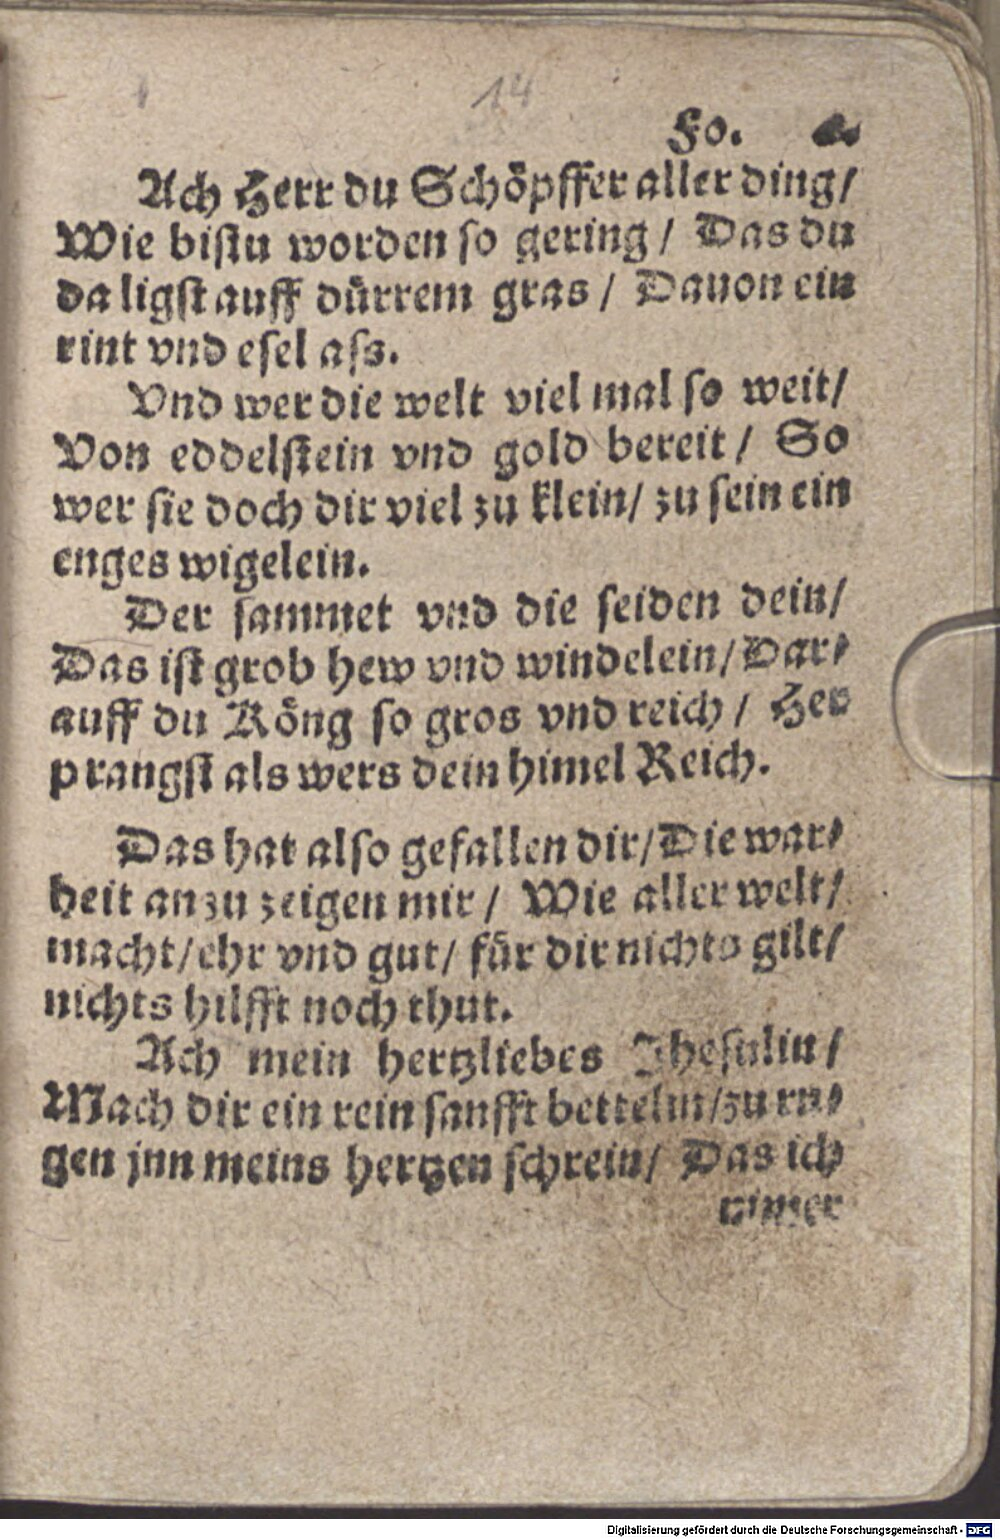 14
Fo.
Ach Herr du Schöpffer aller ding/
Wie bistu worden so gering / Das du
da ligst auff dürrem gras / Dauon ein
rint vnd esel ass.
Vnd wer die welt viel mal so weit/
Von eddelstein vnd gold bereit / So
wer sie doch dir viel zu klein/ zu sein ein
enges wigelein.
Der sammet vnd die seiden dein/
Das ist grob hew vnd windelein/ Dar⸗
auff du Köng so gros vnd reich / Her
prangst als wers dein himel Reich.
Das hat also gefallen dir/ Die war⸗
heit anzu zeigen mir / Wie aller welt/
macht/ ehr vnd gut/ für dir nichts gilt/
nichts hilfft noch thut.
Ach mein hertzliebes Jhesulin/
Mach dir ein rein sanfft bettelin/ zu ru⸗
gen jnn meins hertzen schrein/ Das ich
nimer
Digitalisierung gefördert durch die Deutsche Forschungsgemeinschaft - DFG